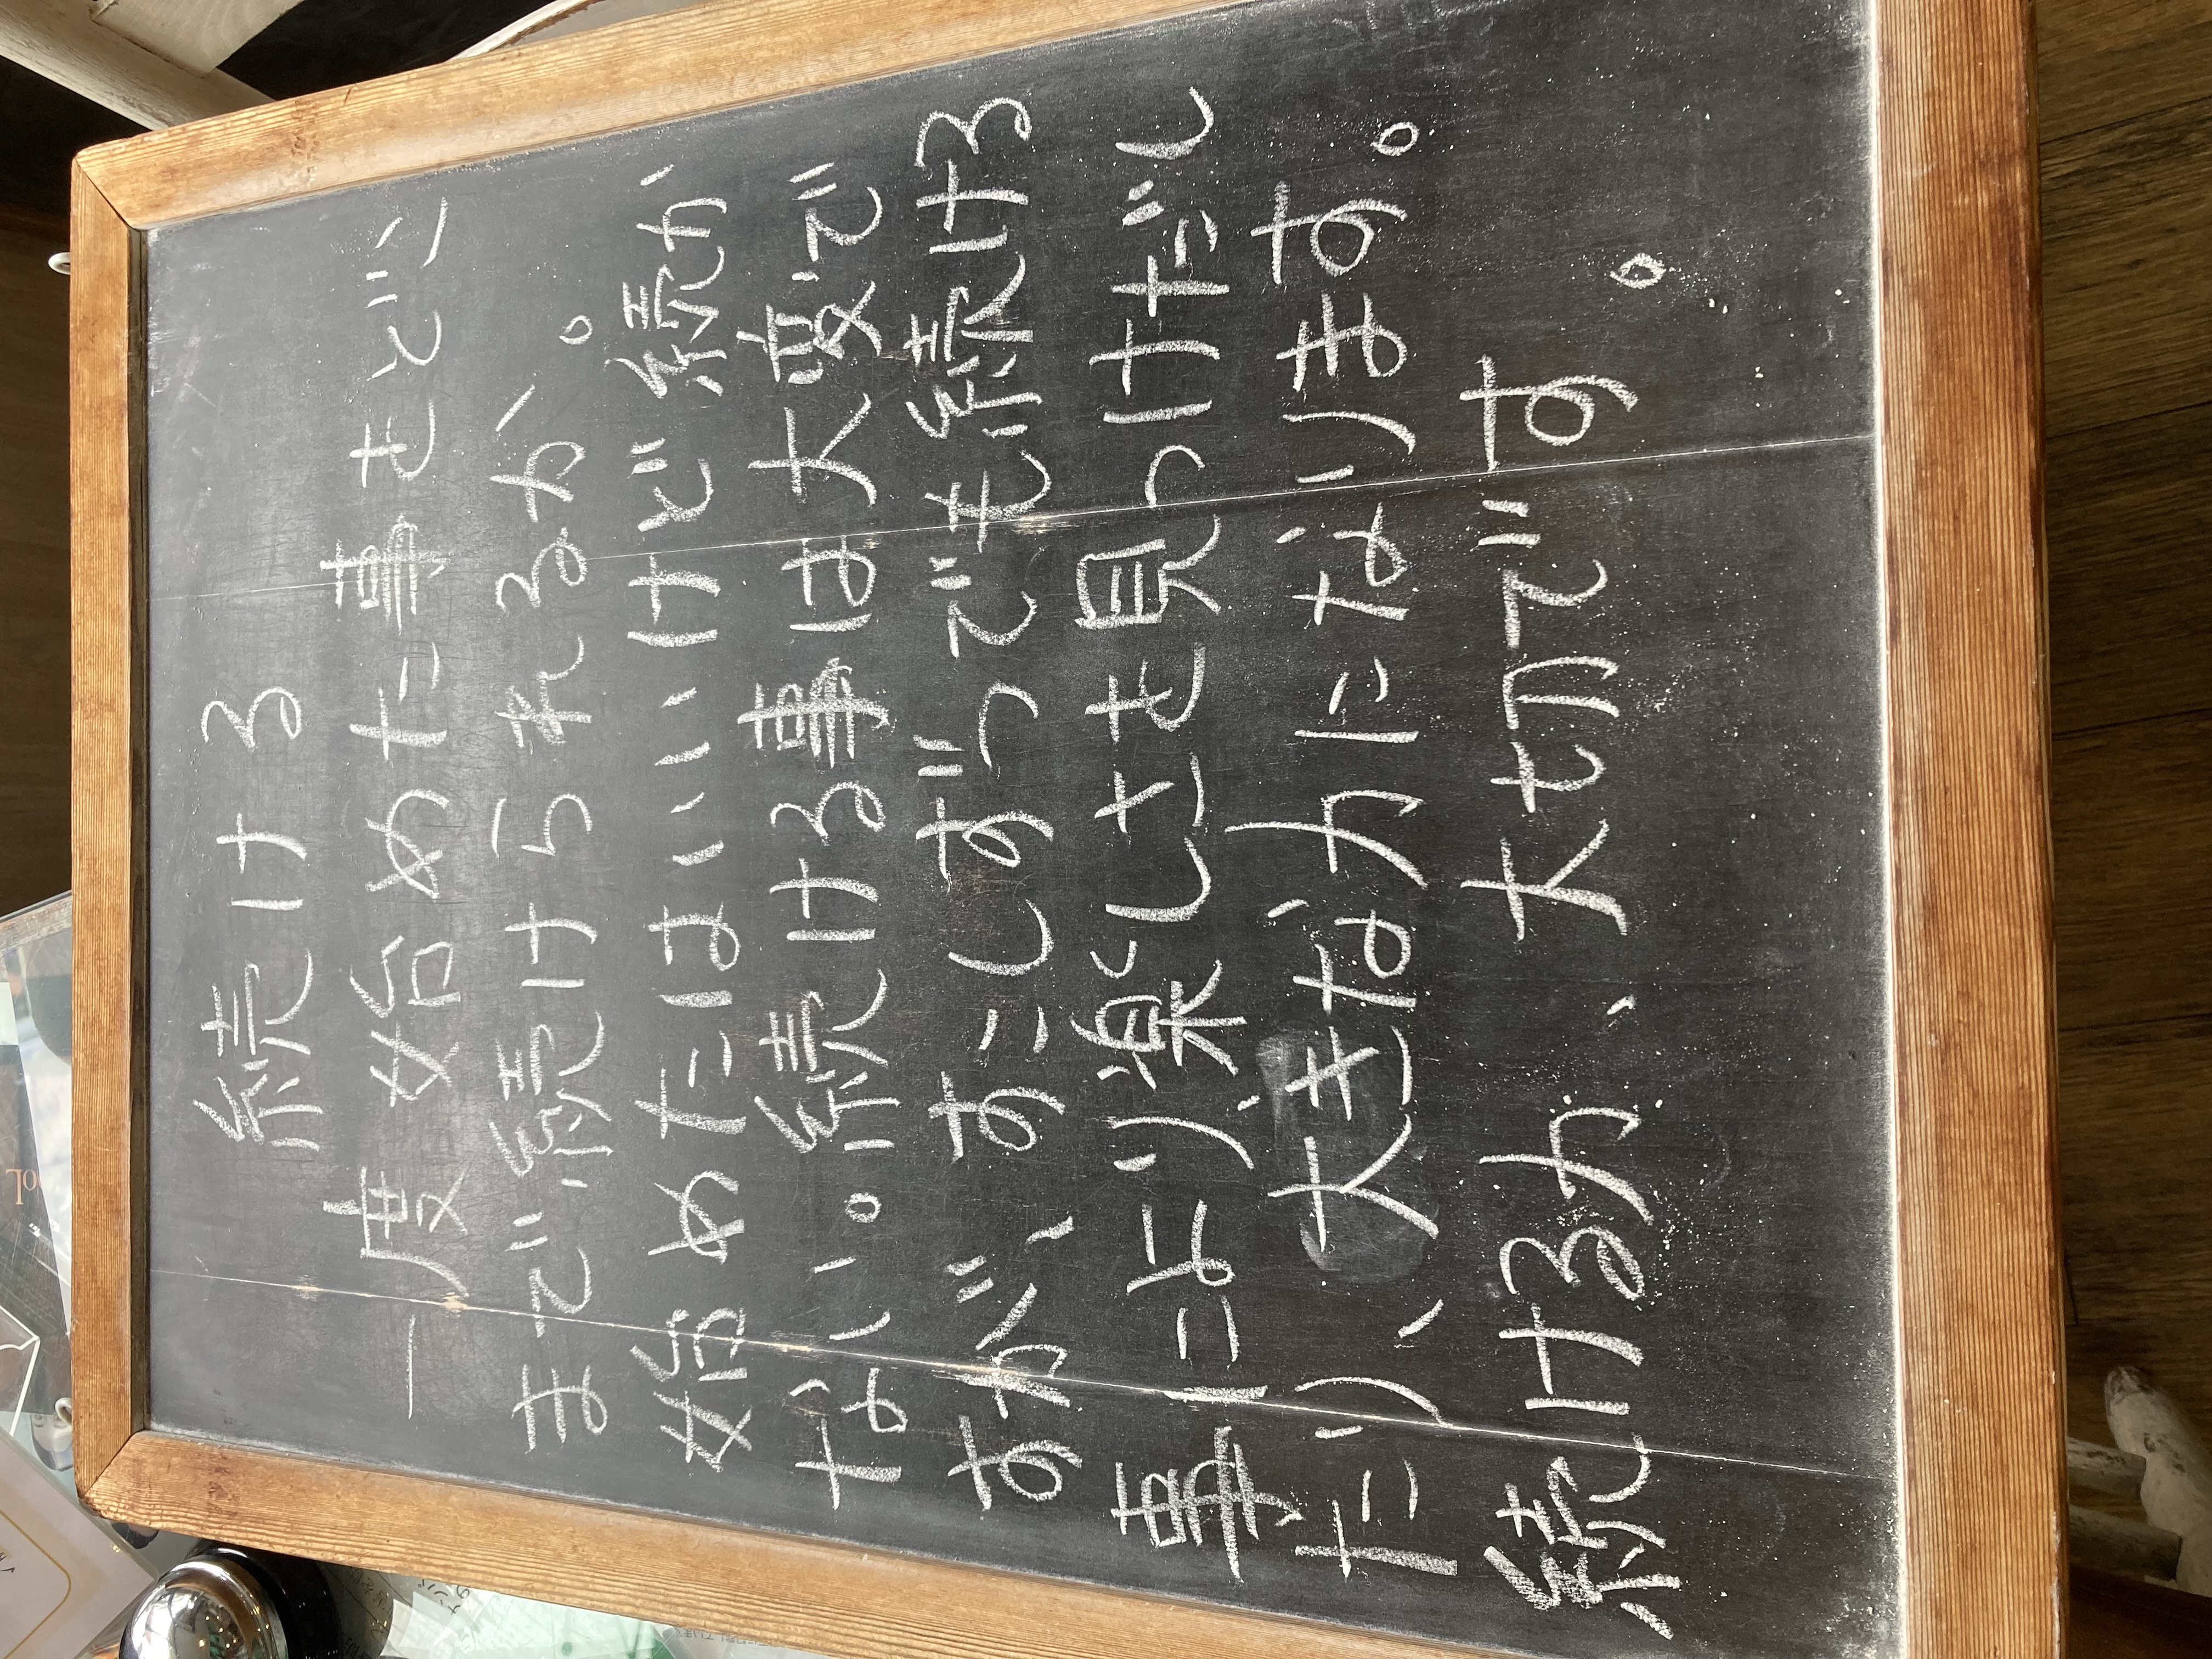 続ける
一度始めた事をどこ
まで続けられるか。
始めたはいいけど続か
ない。続ける事は大変で
すが、すこしずつでも続ける
事により楽しさを見つけだし
たり、大きな力になります。
続ける力、大切です。